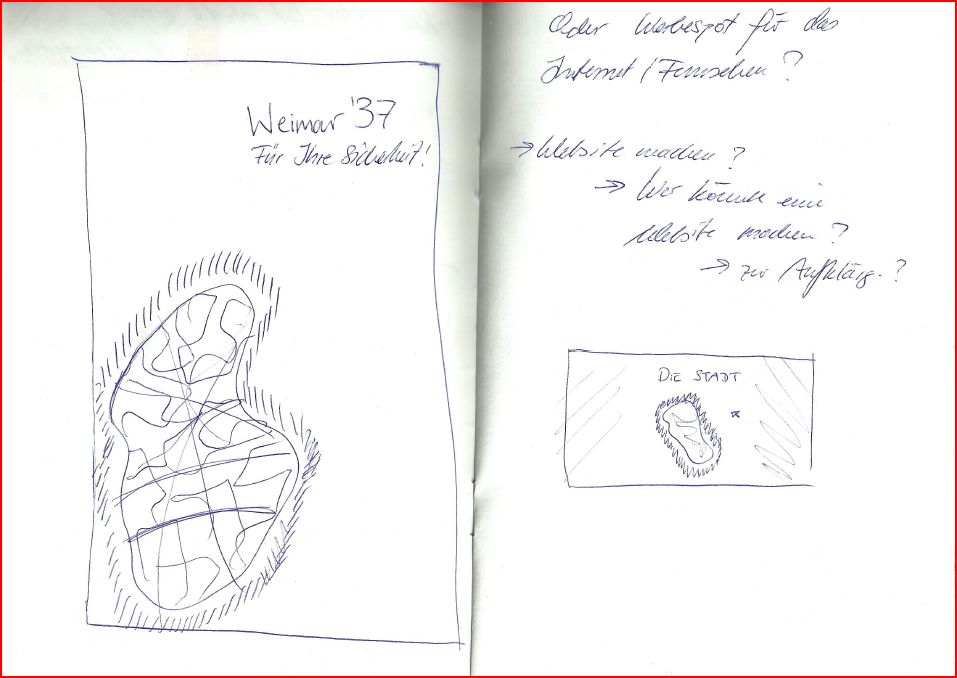 Weimar '37
Für Ihre Sicherheit!
Oder Werbespot für das
Internet / Fernsehen ?
→ Website machen ?
→ Wer könnte eine
Website machen ?
→ zur Aufklärg. ?
DIE STADT